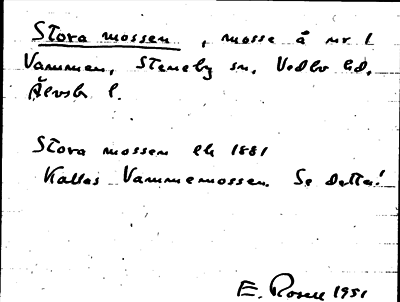 Stora mossen, mosse å nr 1
Vammen, Steneby sn, Vedbo hd,
Älvsb l.
Stora mossen ek 1881
Kallas Vammemossen. Se detta!
E. Rosell 1951